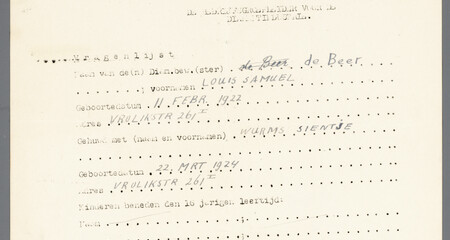 Vragenlijst
Naam van de(n) Dien.bew.(ster) de Beer de Beer
voornamen LOUIS SAMUEL
Geboortedatum 11 FEBR. 1922
Adres VROLIKSTR 261 I
Gehuwd met (naam en voornamen) WURMS SIENTJE
Geboortedatum 22 MRT 1924
Adres VROLIKSTR 261 I
Kinderen beneden den 16 jarigen leertijd: